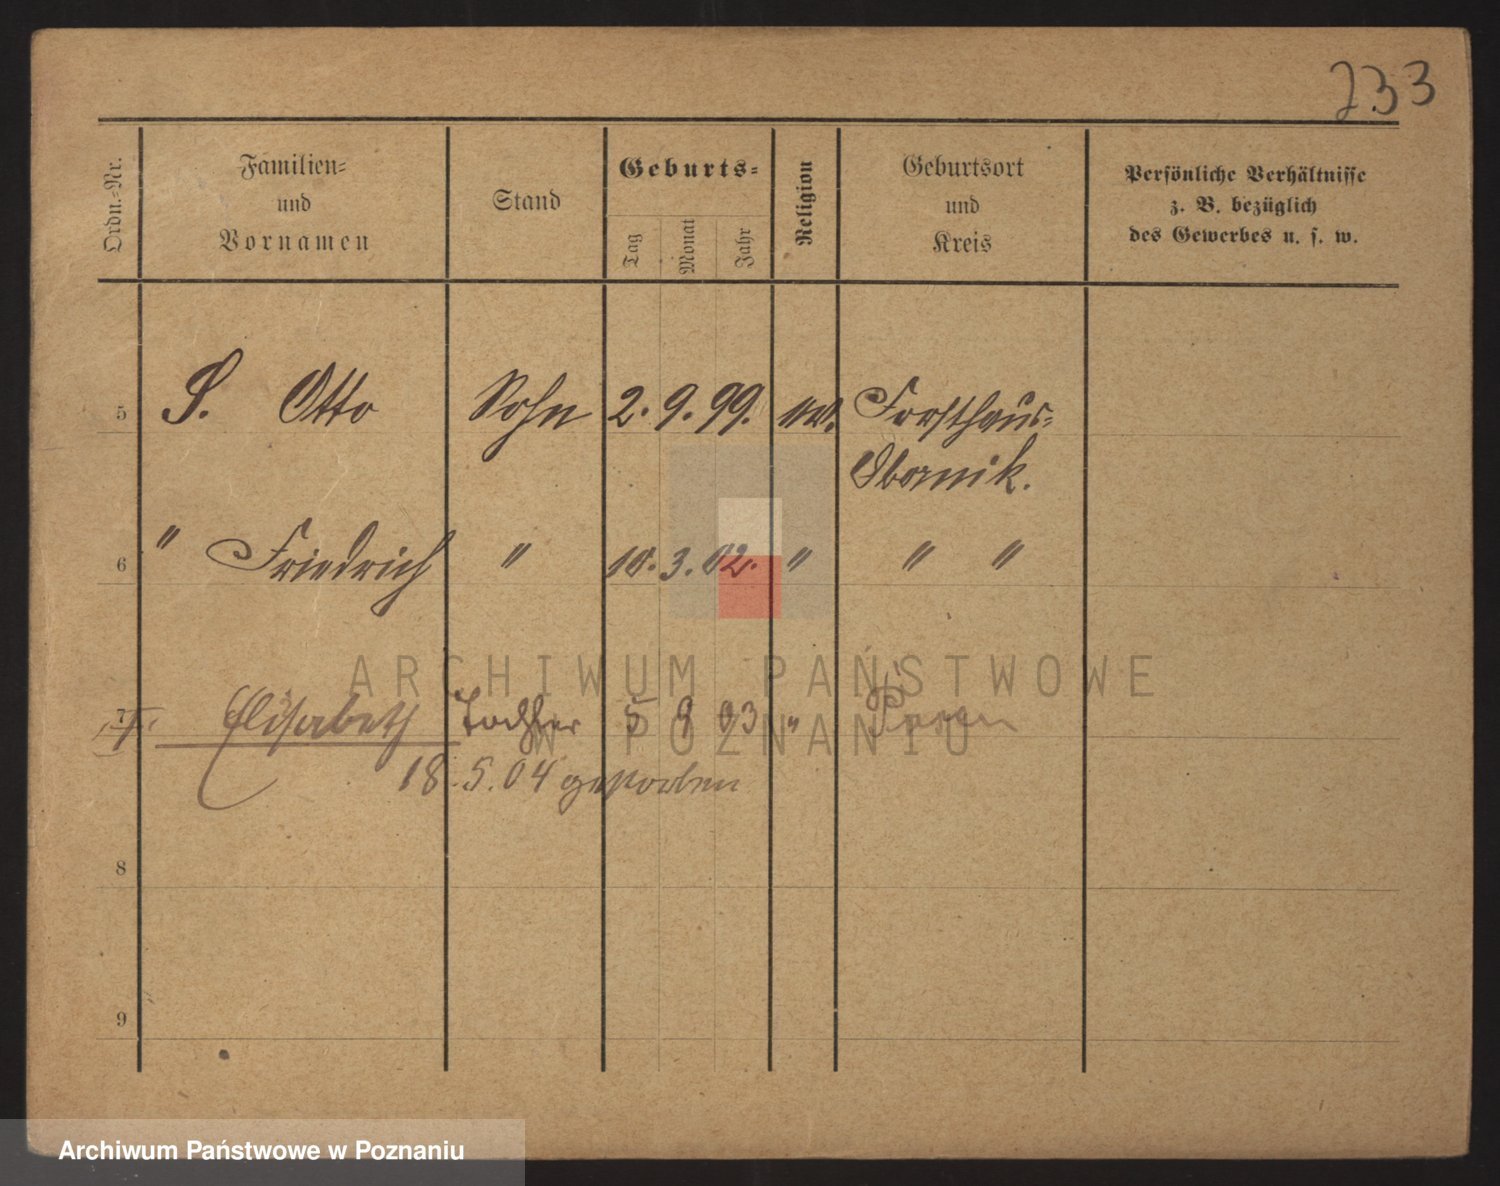 233
Ordn.-Nr.
Familien-
und
Vornamen
Stand
Geburts-
Tag
Monat
Jahr
Religion
Geburtsort
und
Kreis
Persönliche Verhältnisse
z. B. bezüglich
des Gewerbes u. s. w.
5 S. Otto Sohn 2. 9. 99. Forsthaus-
Obornik.
6 " Friedrich " 10. 3. 02. " " "
7 Elisabeth Tochter 5 9 03 " Posen
18.5.04 gestorben
8
9
ARCHIWUM PAŃSTWOWE
W POZNANIU
Archiwum Państwowe w Poznaniu